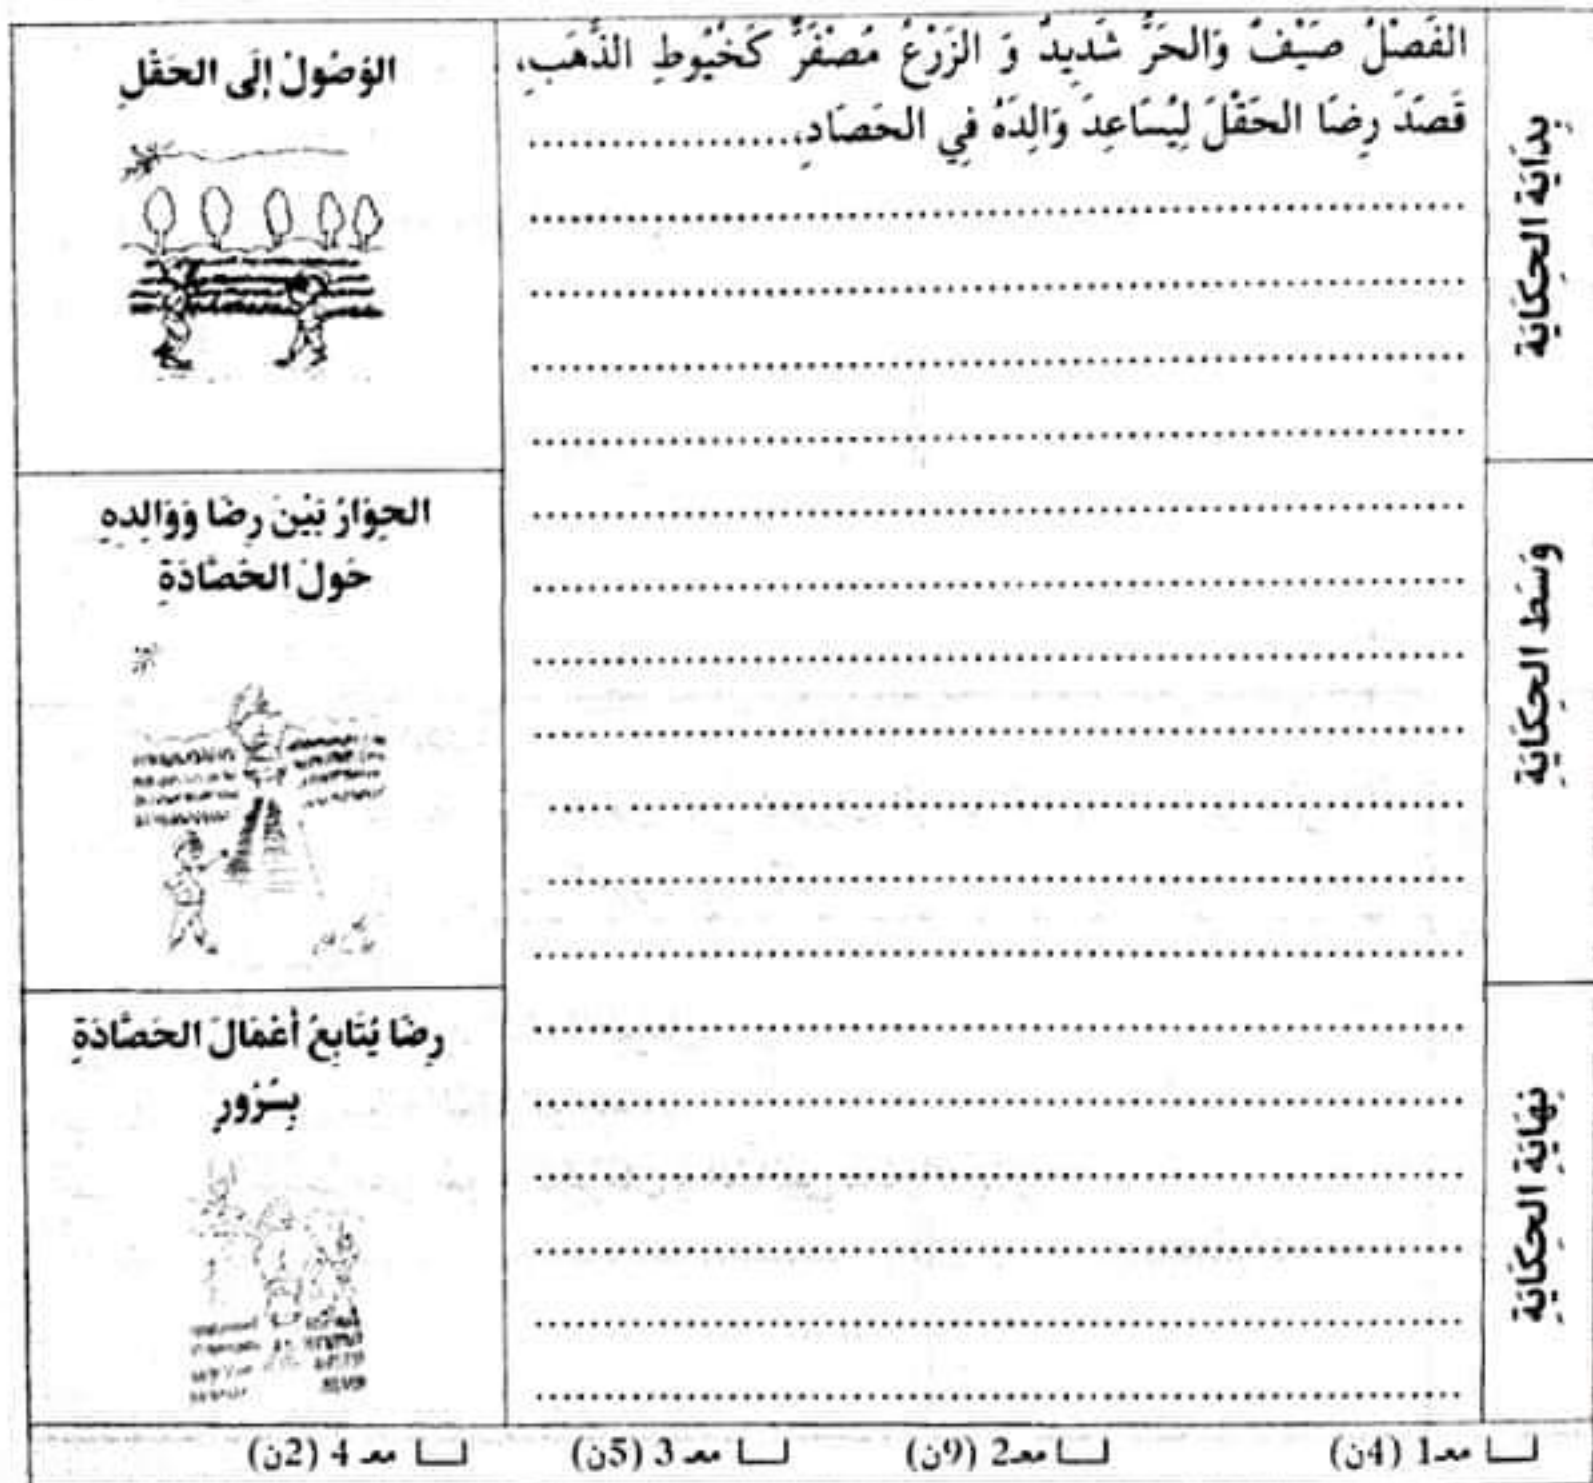 بِدَايَة الحِكَايَة
الفَصْلُ صَيْفٌ وَالحَرُّ شَدِيدٌ وَ الزَرْعُ مُصْفَرٌّ كَخُيُوطِ الذَّهَبِ،
قَصَدَ رِضَا الحَقْلَ لِيُسَاعِدَ وَالِدَهُ فِي الحَصَادِ،..................
الوُصُولُ إِلَى الحَقْلِ
وَسَط الحِكَايَةِ
الحِوَارُ بَيْنَ رِضَا وَوَالِدِهِ
حَولَ الحَصَّادَةِ
نِهَايَةِ الحِكَايَةِ
رِضَا يُتَابِعُ أَعْمَالَ الحَصَّادَةِ
بِسُرُورٍ
معـ1 (4ن) معـ2 (9ن) معـ 3 (5ن) معـ 4 (2ن)